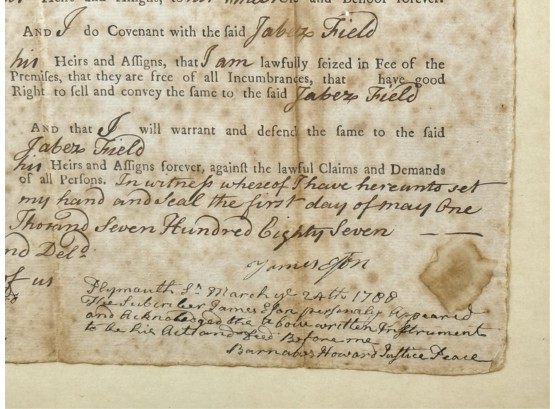 Heirs and Assigns, to
and Behoof forever.
AND I do Covenant with the said Jabez Field
his Heirs and Aſſigns, that I am lawfully ſeized in Fee of the
Premiſes, that they are free of all Incumbrances, that have good
Right to ſell and convey the ſame to the ſaid Jabez Field
AND that I will warrant and defend the ſame to the ſaid
Jabez Field
his Heirs and Aſſigns forever, againſt the lawful Claims and Demands
of all Perſons. In witneſs whereof I have hereunto set
my hand and Seal the first day of may One
Thousand Seven Hundred Eighty Seven
nd Deld
of us
James
Plymouth Ss March ye 24th 1788
The Subscriber James personaly Appeared
and Acknowledged the Above written Instrument
to be his Act and Deed Before me
Barnabas Howard Justice Peace